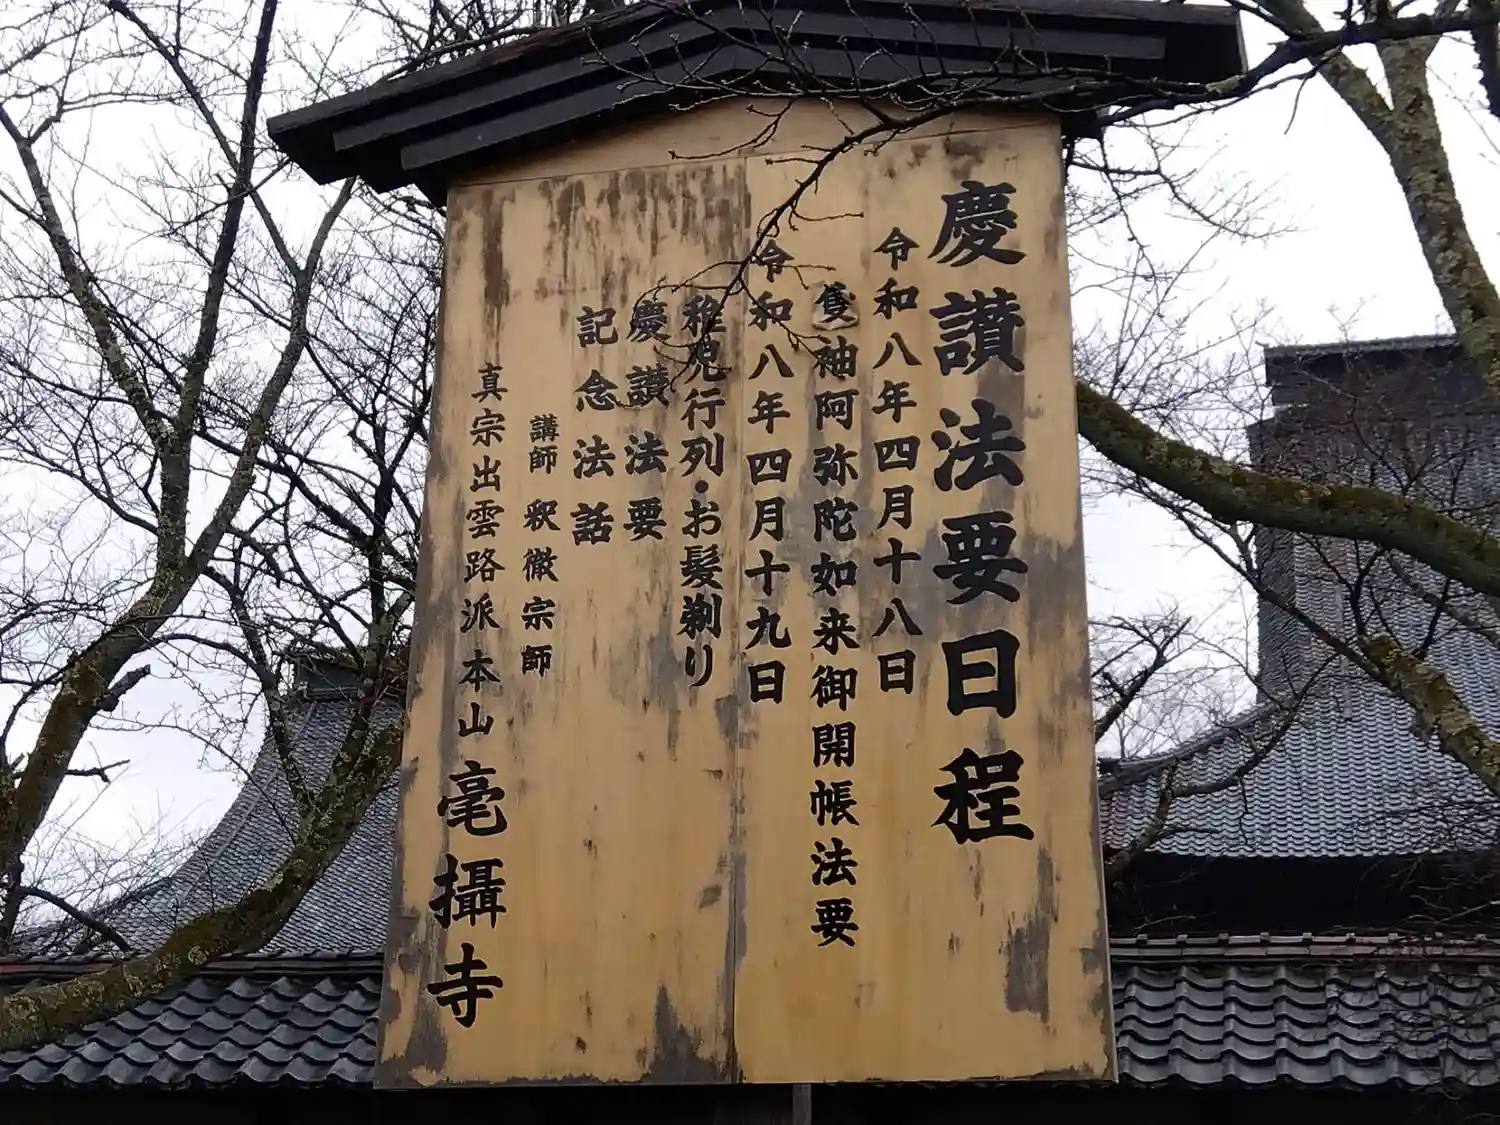 慶讃法要日程
令和八年四月十八日
隻袖阿弥陀如来御開帳法要
令和八年四月十九日
稚児行列・お髪剃り
慶讃法要
記念法話
講師 釈徹宗師
真宗出雲路派本山毫攝寺